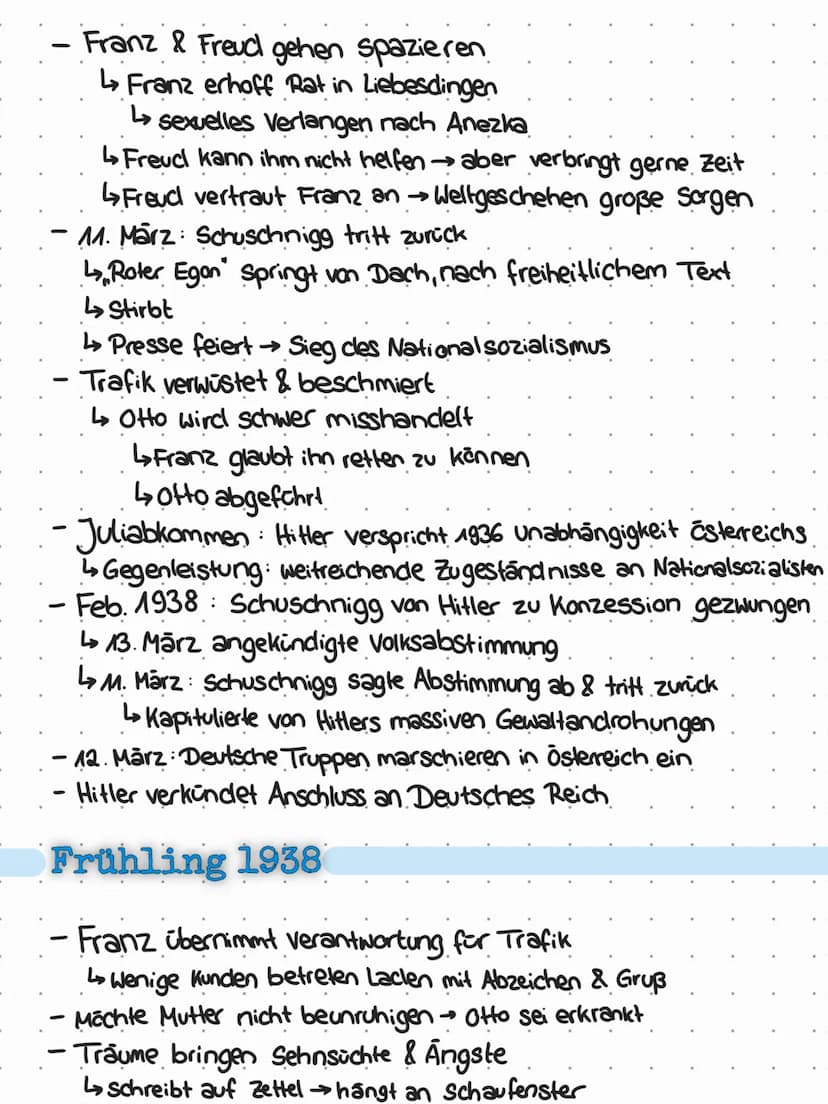 - Franz & Freud gehen spazieren
↳ Franz erhoff Rat in Liebesdingen
↳ sexuelles Verlangen nach Anezka
↳ Freud kann ihm nicht helfen → aber verbringt gerne Zeit
↳ Freud vertraut Franz an → Weltgeschehen große Sorgen
- 11. März: Schuschnigg tritt zurück
↳ „Roter Egon" springt von Dach, nach freiheitlichem Text
↳ Stirbt
↳ Presse feiert → Sieg des Nationalsozialismus
- Trafik verwüstet & beschmiert
↳ Otto wird schwer misshandelt
↳ Franz glaubt ihn retten zu können
↳ Otto abgeführt
- Juliabkommen: Hitler verspricht 1936 Unabhängigkeit Österreichs
↳ Gegenleistung: weitreichende Zugeständnisse an Nationalsozialisten
- Feb. 1938: Schuschnigg von Hitler zu Konzession gezwungen
↳ 13. März angekündigte Volksabstimmung
↳ 11. März: Schuschnigg sagte Abstimmung ab & tritt zurück
↳ Kapitulierte von Hitlers massiven Gewaltandrohungen
- 12. März: Deutsche Truppen marschieren in Österreich ein
- Hitler verkündet Anschluss an Deutsches Reich
Frühling 1938
- Franz übernimmt Verantwortung für Trafik
↳ Wenige Kunden betreten Laden mit Abzeichen & Gruß
- Möchte Mutter nicht beunruhigen → Otto sei erkrankt
- Träume bringen Sehnsüchte & Ängste
↳ schreibt auf Zettel → hängt an Schaufenster